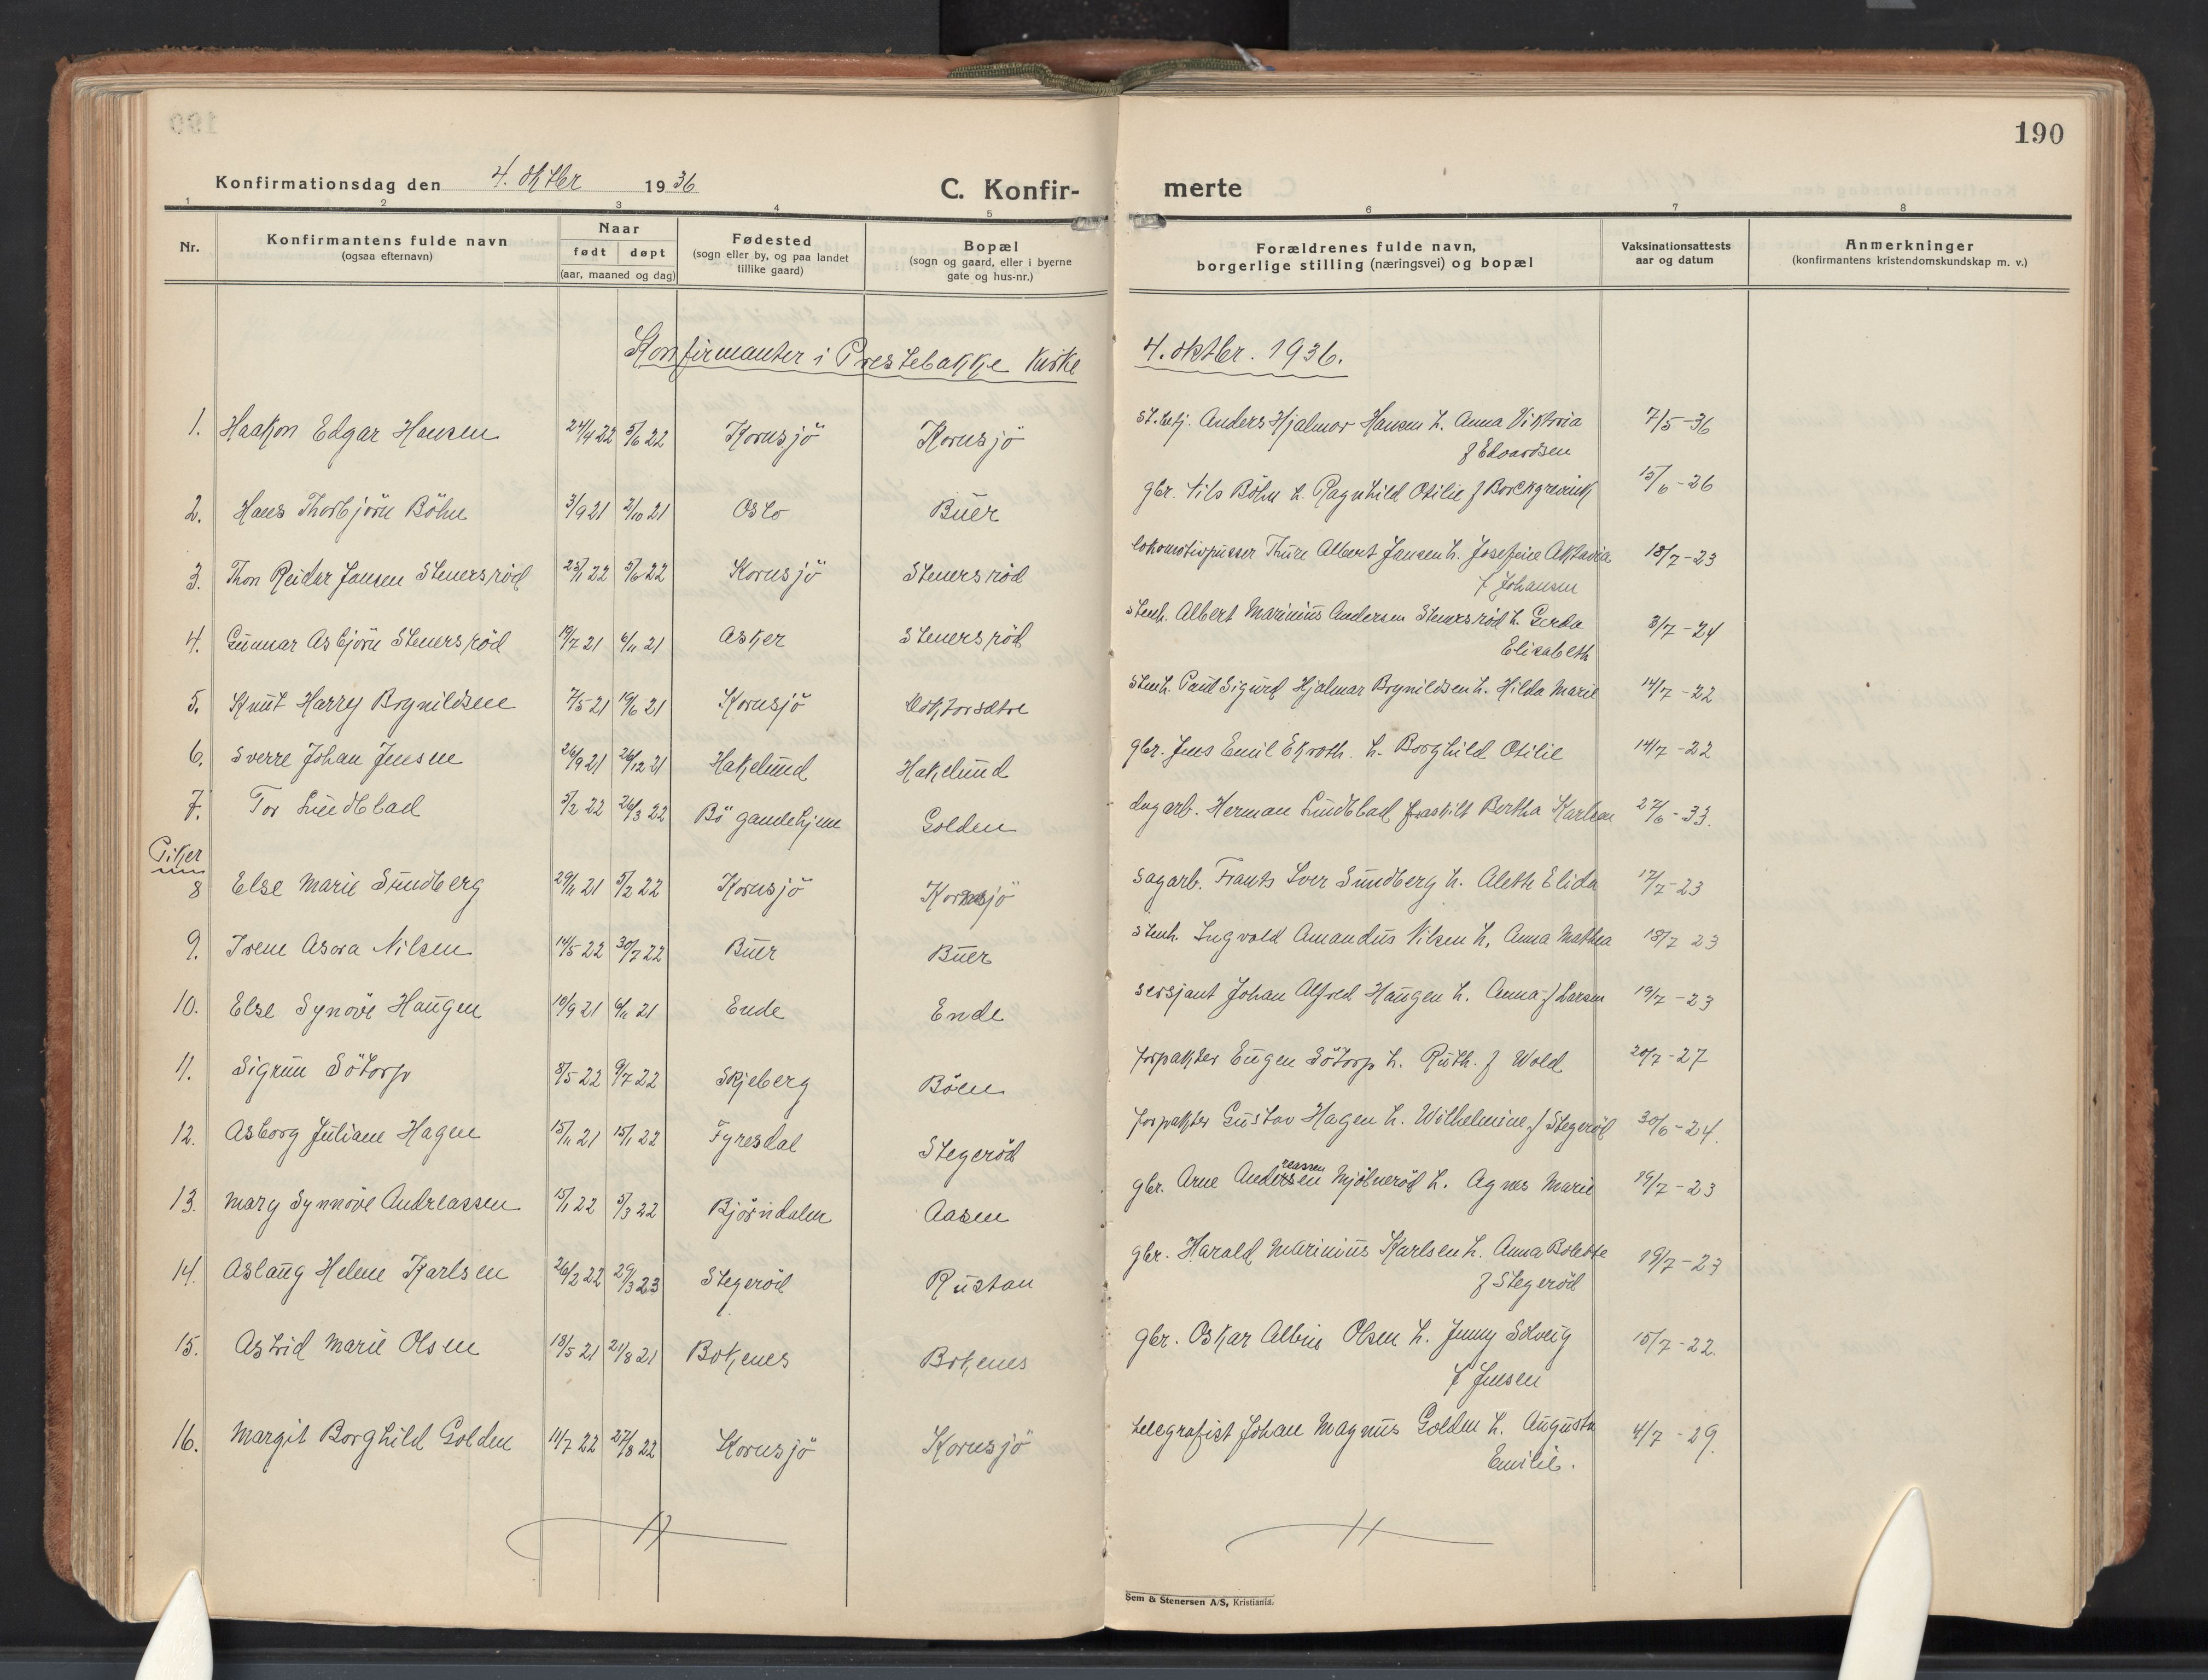 190
Konfirmationsdag den 4. oktbr 1936
C. Konfir-
merte
1 2 3 4 5 6 7 8
Nr.
Konfirmantens fulde navn
(ogsaa efternavn)
Naar
født døpt
(aar, maaned og dag)
Fødested
(sogn eller by, og paa landet
tillike gaard)
Bopæl
(sogn og gaard, eller i byerne
gate og hus-nr.)
Forældrenes fulde navn,
borgerlige stilling (næringsvei) og bopæl
Vaksinationsattests
aar og datum
Anmerkninger
(konfirmantens kristendomskundskap m. v.)
Konfirmanter i Prestebakke Kirke 4. oktbr. 1936.
1. Haakon Edgar Hansen 24/4 22 5/6 22 Kornsjö Kornsjö Anders Hjalmar Hansen h. Anna Viktoria 7/5-36
f Edvardsen
2. Hans Thorbjörn Böhn 3/9 21 2/10 21 Oslo Buer gbr. Nils Böhn h. Ragnhild Otilie f Borchgrevink 15/6-26
3. Thon Reidar Jansen Stenersröd 23/1 22 5/6 22 Kornsjö Stenersröd lokomotivpusser Thure Albert Jansen h. Josefine Aktavia 18/7-23
f Johansen
4. Gunnar Asbjörn Stenersröd 19/7 21 6/11 21 Asker Stenersröd stenh. Albert Marinius Andersen Stenersröd h. Gerda 3/7-24
Elisabeth
5. Knut Harry Brynildsen 7/5 21 19/6 21 Kornsjö Doktorsætre stenh. Paul Sigurd Hjalmar Brynildsen h. Hilda Marie 14/7-22
6. Sverre Johan Jensen 26/9 21 26/12 21 Hakelund Hakelund gbr. Jens Emil Ekroth. h. Borghild Otilie 14/7-22
7. Tor Lindblad 5/2 22 26/3 22 Bö gamlehjem Golden dagarb. Herman Lindblad fraskilt Bertha Karlsen 27/6-33.
Piker
8 Else Marie Sundberg 29/11 21 5/2 22 Kornsjö Kornsjö sagarb. Frants Iver Sundberg h. Aleth Elida 17/7-23
9. Irene Asora Nilsen 14/5 22 30/7 22 Buer Buer stenh. Ingvald Amandus Nilsen h. Anna Mathea 18/7 23
10. Else Synöve Haugen 10/9 21 6/11 21 Ende Ende sersjant Johan Alfred Haugen h. Anna f Larsen 19/7-23
11. Sigrun Sötorp 8/5 22 9/7 22 Skjeberg Böen forpakter Eugen Sötorp h. Ruth. f Wold 20/7-27
12. Asborg Juliane Hagen 15/11 21 15/1 22 Fyresdal Stegeröd forpakter Gustav Hagen h. Wilhelmine f Stegeröd 30/6-24.
13. Mary Synnöve Andreassen 15/1 22 5/3 22 Björndalen Aasen gbr. Arne Andersen reassen Mjölneröd h. Agnes Marie 19/7-23
14. Aslaug Helene Karlsen 26/2 22 29/3 23 Stegeröd Rustan gbr. Harald Marinius Karlsen h. Anna Bolette 19/7-23
f Stegeröd
15. Astrid Marie Olsen 13/5 21 21/8 21 Bokenes Bokenes gbr. Oskar Albin Olsen h. Jenny Solveig 15/7-22.
f Jensen
16. Margit Borghild Golden 11/7 22 27/8 22 Kornsjö Kornsjö telegrafist Johan Magnus Golden h. Augusta 4/7-29.
Emilie.
Sem & Stenersen A/S, Kristiania.